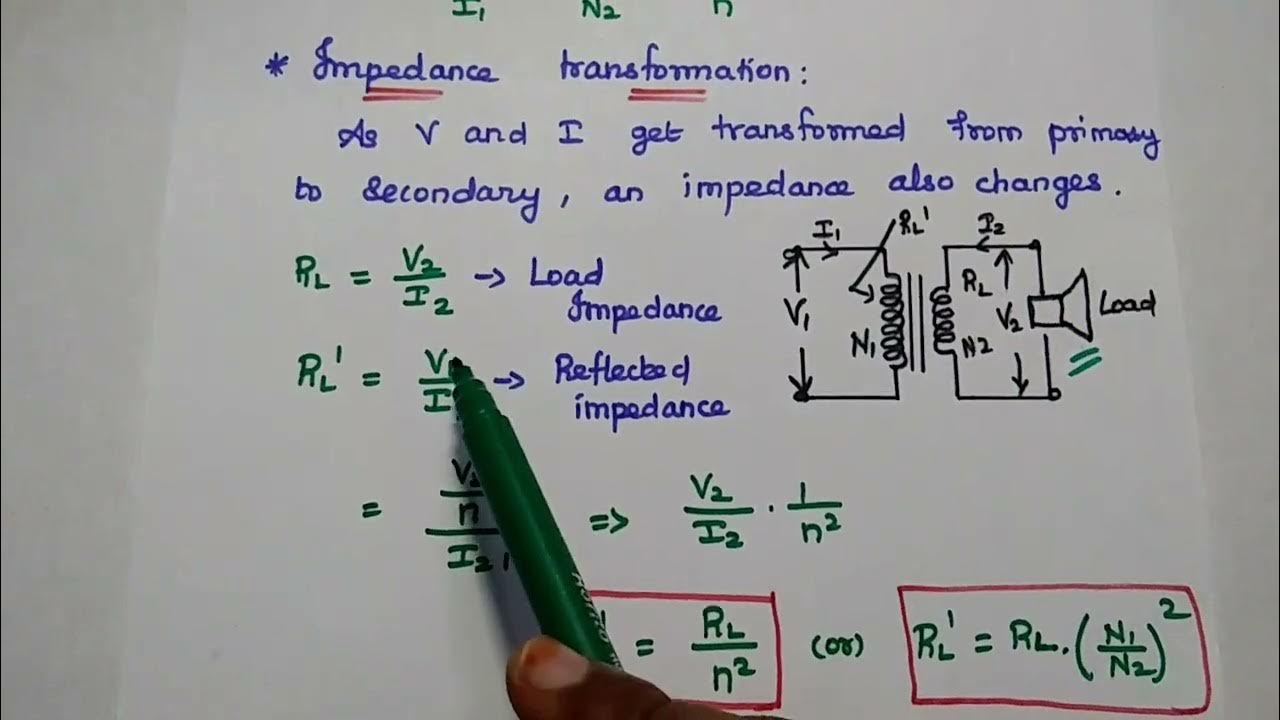 I₁ N₂ n
* Impedance transformation:
As V and I get transformed from primary
to secondary, an impedance also changes.
R_L = V₂/I₂ → Load
Impedance
R_L' = V/I → Reflected
impedance
= (V₂/n)/I₂ ⇒ V₂/I₂ . 1/n²
' = R_L/n² (or) R_L' = R_L.(N₁/N₂)²
I₁ R_L' I₂
V₁ N₁ N2 R_L V₂ Load